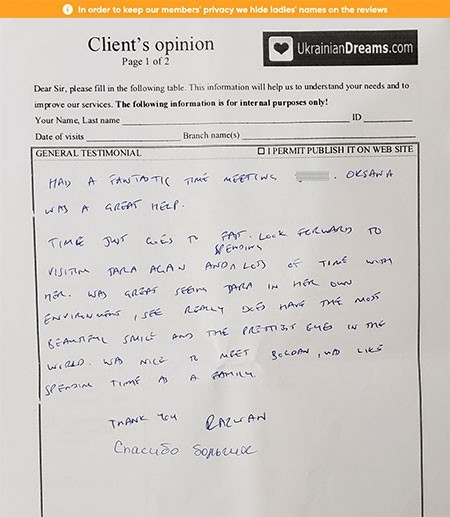 In order to keep our members' privacy we hide ladies' names on the reviews
Client's opinion
Page 1 of 2
UkrainianDreams.com
Dear Sir, please fill in the following table. This information will help us to understand your needs and to
improve our services. The following information is for internal purposes only!
Your Name, Last name ID
Date of visits Branch name(s)
GENERAL TESTIMONIAL ☐ I PERMIT PUBLISH IT ON WEB SITE
HAD A FANTASTIC TIME MEETING . OKSANA
WAS A GREAT HELP.
TIME JUST GOES TO FAST. LOOK FORWARD TO
SPENDING
VISITING TARA AGAIN AND LOTS OF TIME WITH
HER. WAS GREAT SEEING TARA IN HER OWN
ENVIRONMENT, SHE REALLY DOES HAVE THE MOST
BEAUTIFUL SMILE AND THE PRETTIEST EYES IN THE
WORLD. WAS NICE TO MEET BOGDAN, LIKE
SPENDING TIME AS A FAMILY.
THANK YOU
Спасибо